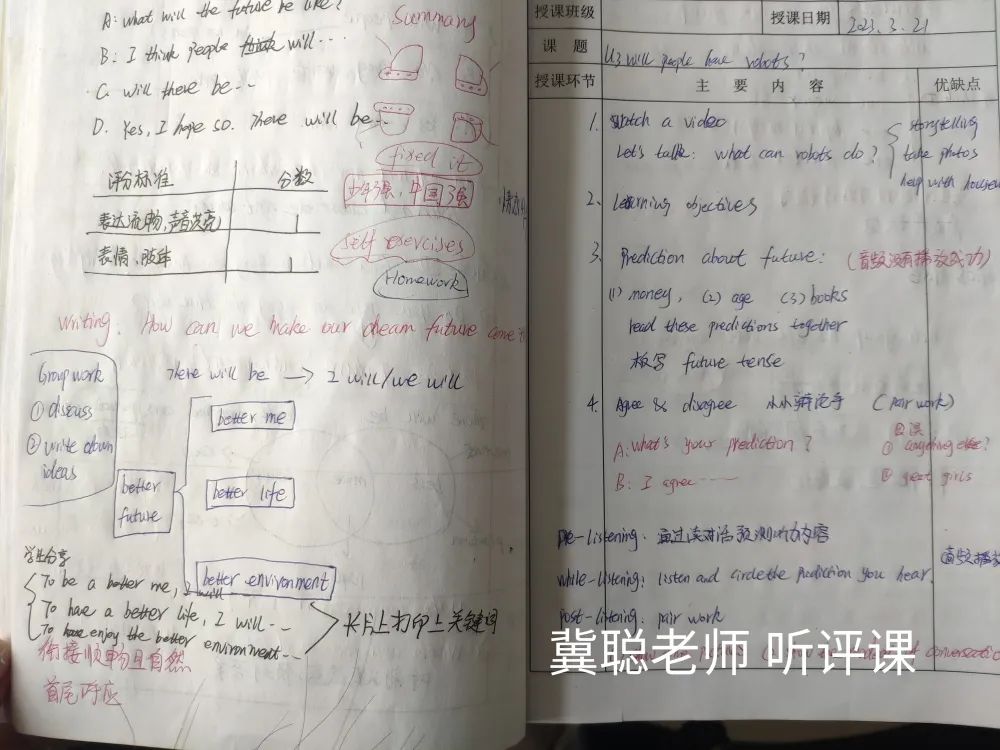 A: what will the future be like?
B: I think people will...
C. will there be...
D. Yes, I hope so. There will be...
Summary
fixed it
少年强, 中国强
self exercises
Homework
评分标准 分数
表达流畅, 声音洪亮
表情, 肢体
Writing: How can we make our dream future come
Group work
① discuss
② write down
ideas
There will be → I will/we will
better me
better life
better
future
better environment
学生分享
To be a better me, I will
To have a better life, I will...
To enjoy the better environment...
长片上打印上关键词
衔接顺畅且自然
首尾呼应
授课班级 授课日期 2023.3.21
课题 U3 will people have robots?
授课环节 主要内容 优缺点
1. Watch a video
Let's talk: what can robots do?
storytelling
take photos
help with housew
2. Learning objectives
3. Prediction about future: (音频没有播放成功)
(1) money, (2) age (3) books
read these predictions together
板写 future tense
4. Agree & disagree 小小辩论手 (pair work)
A: What's your prediction?
B: I agree......
口误
① anything else?
② great girls
pre-listening: 通过读对话预测听力内容
while-listening: listen and circle the prediction you hear.
post-listening: pair work
冀聪老师 听评课